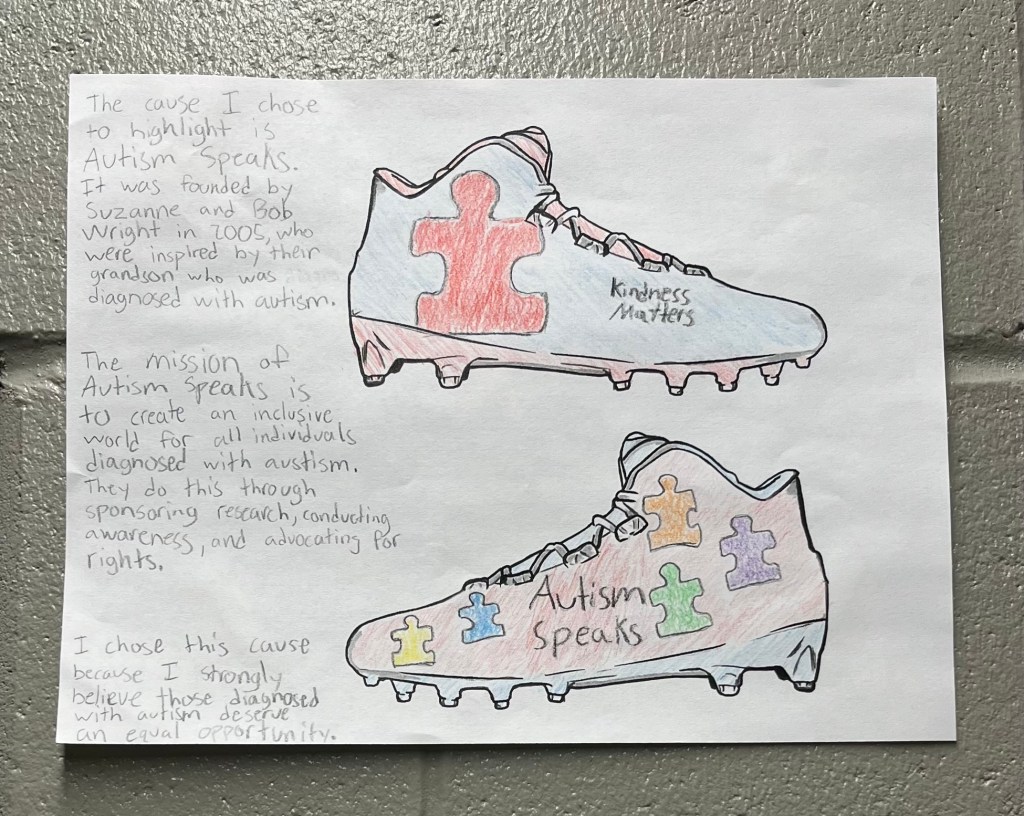 The cause I chose
to highlight is
Autism Speaks.
It was founded by
Suzanne and Bob
Wright in 2005, who
were inspired by their
grandson who was
diagnosed with autism.
The mission of
Autism Speaks is
to create an inclusive
world for all individuals
diagnosed with austism.
They do this through
sponsoring research, conducting
awareness, and advocating for
rights.
I chose this cause
because I strongly
believe those diagnosed
with autism deserve
an equal opportunity.
Kindness
Matters
Autism
Speaks